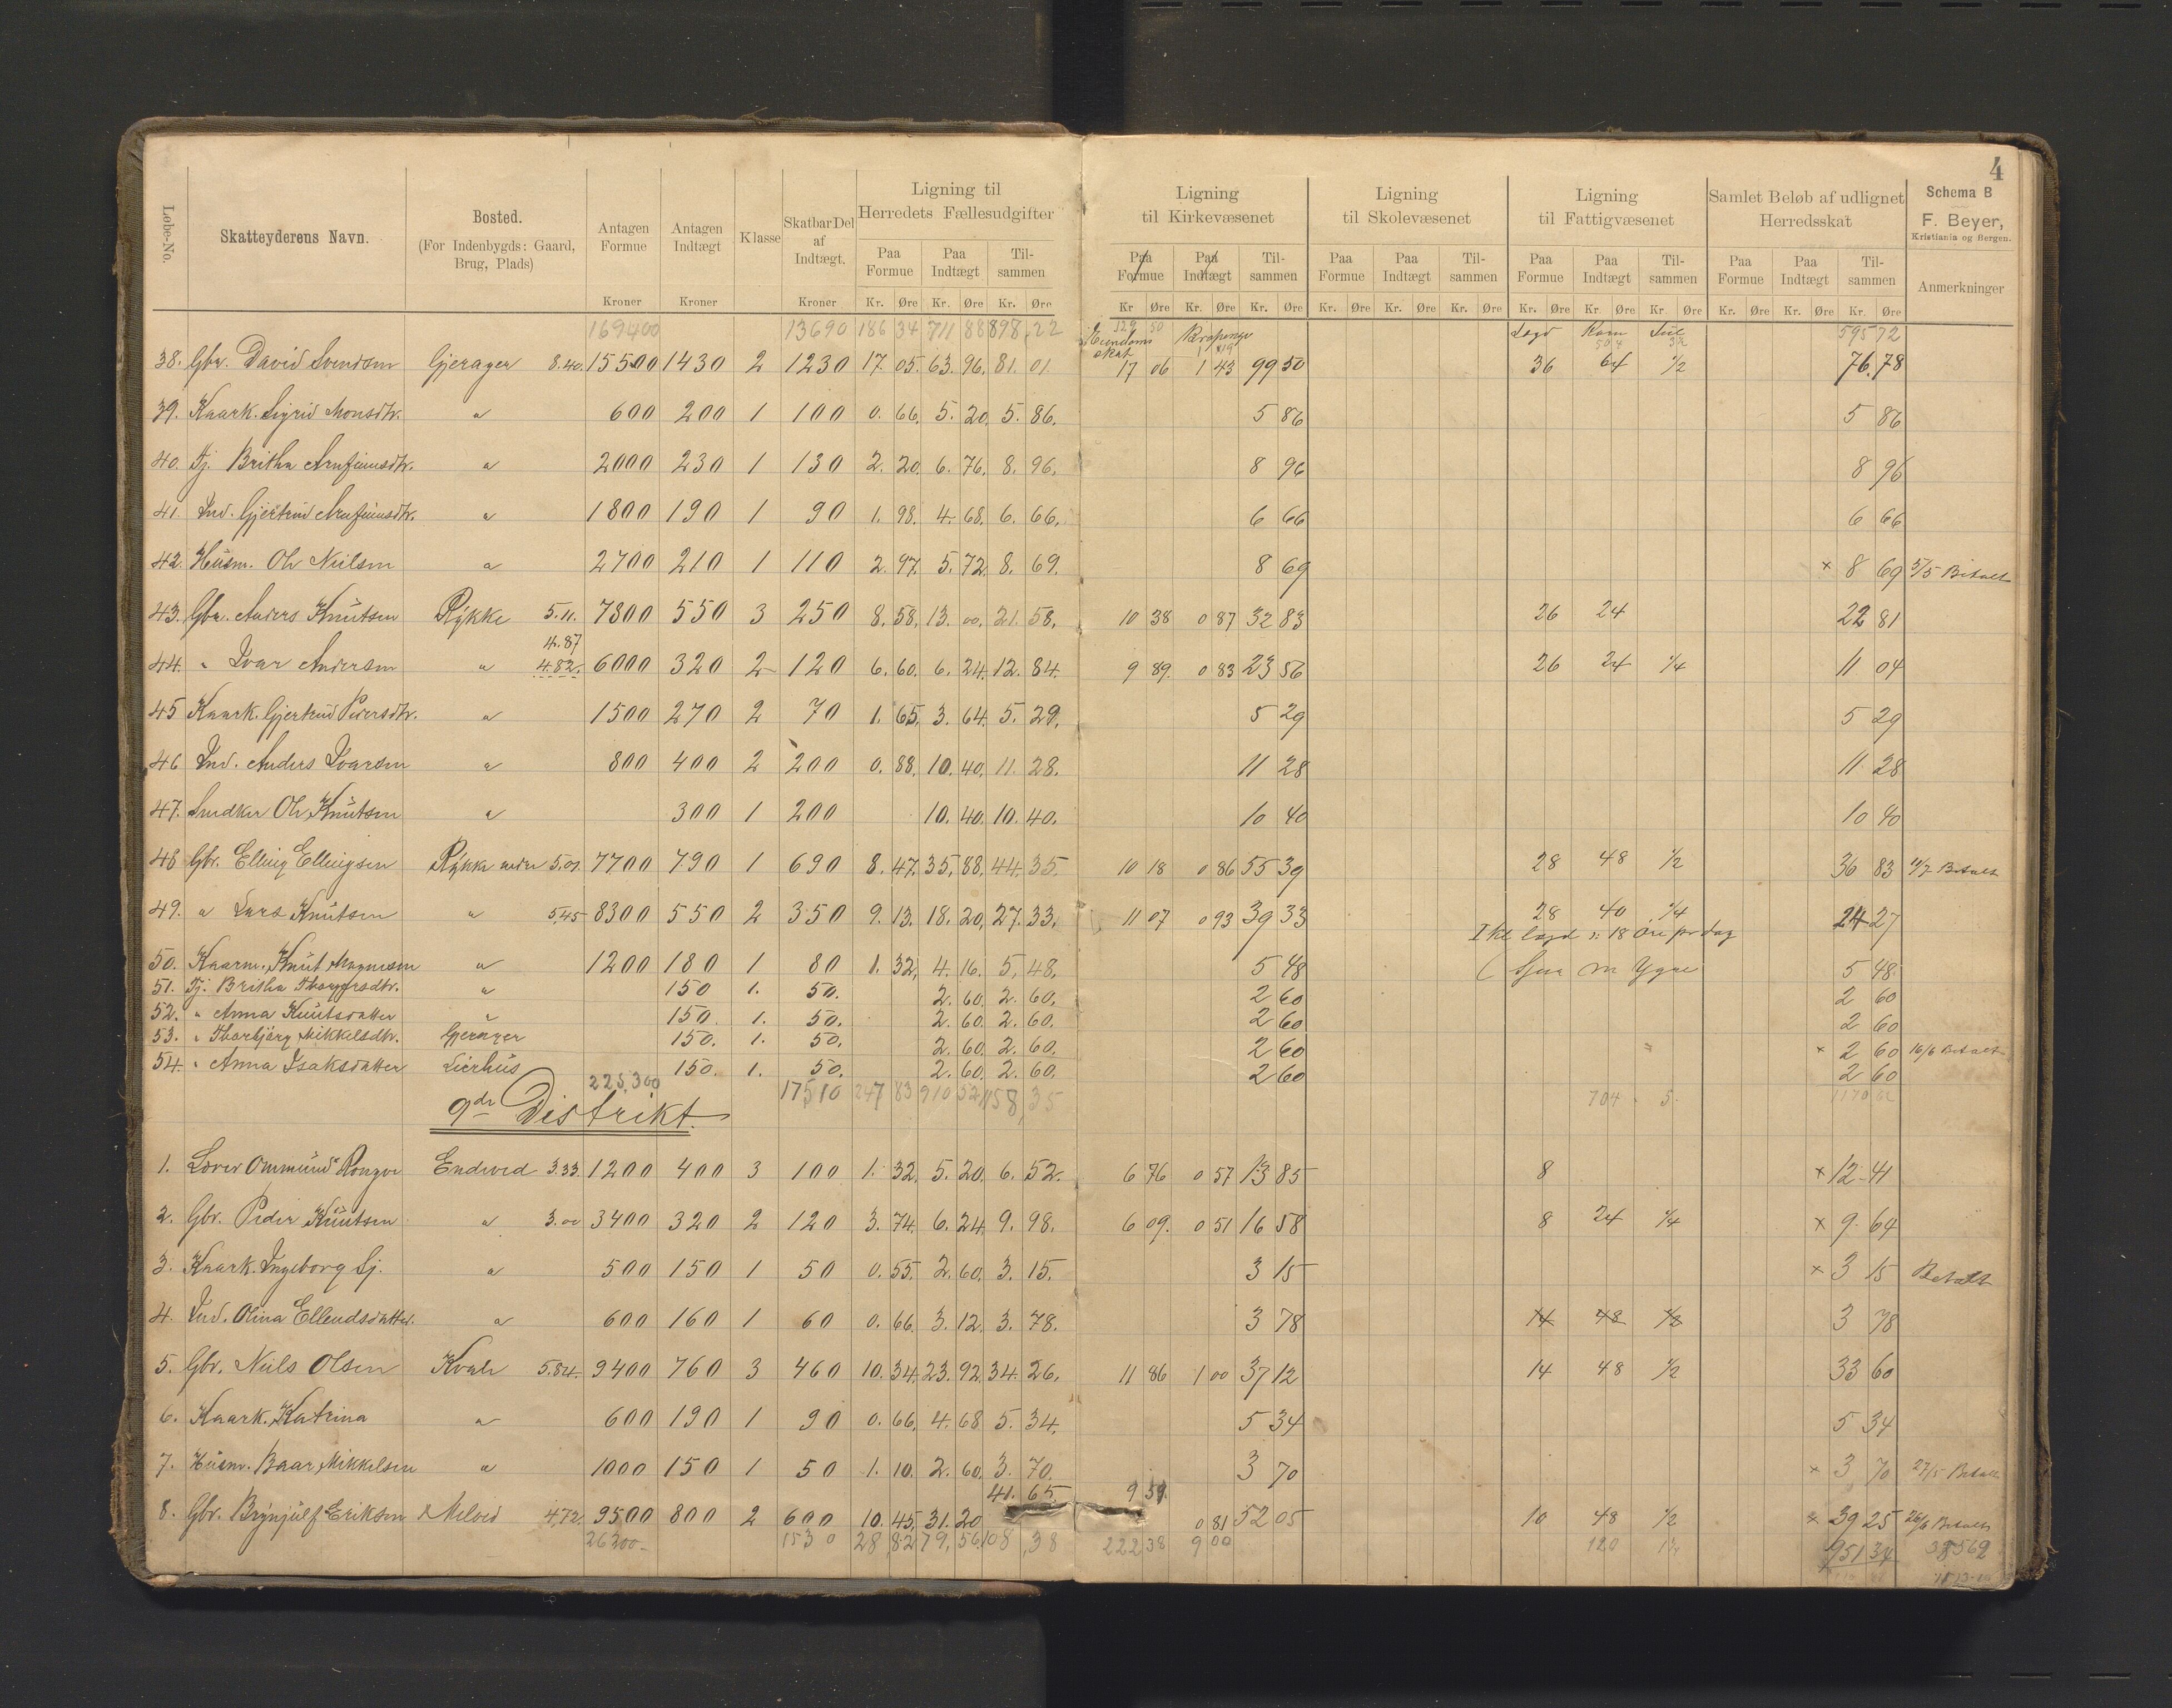 4
Løbe-No. Skatteyderens Navn. Bosted. (For Indenbygds: Gaard, Brug, Plads) Antagen Formue Kroner Antagen Indtægt Kroner Klasse Skatbar Del af Indtægt. Kroner Ligning til Herredets Fællesudgifter Paa Formue Kr. Øre Paa Indtægt Kr. Øre Tilsammen Kr. Øre
Ligning til Kirkevæsenet Paa Formue Kr Øre Paa Indtægt Kr. Øre Tilsammen Kr. Øre
Ligning til Skolevæsenet Paa Formue Kr. Øre Paa Indtægt Kr. Øre Tilsammen Kr. Øre
Ligning til Fattigvæsenet Paa Formue Kr. Øre Paa Indtægt Kr. Øre Tilsammen Kr. Øre
Samlet Beløb af udlignet Herredsskat Paa Formue Kr. Øre Paa Indtægt Kr. Øre Tilsammen Kr. Øre
Schema B
F. Beyer,
Kristiania og Bergen.
Anmerkninger
169400 13690 186 34 711 88 898,22 529 50 Lægd Korn 595 72
skat
38. Gbr. David Svendsen Gjerager 8.40. 15500 1430 2 1230 17. 05. 63. 96. 81. 01. 17 06 1 43 99 50 36 64 1/2 76.78
39. Kaark. Sigrid Monsdtr. " 600 200 1 100 0. 66. 5. 20. 5. 86. 5 86 5 86
40. Tj. Britha Arnfinnsdtr. " 2000 230 1 130 2. 20. 6. 76. 8. 96. 8 96 8 96
41. Ind. Gjertrud Arnfinnsdtr. " 1800 190 1 90 1. 98. 4. 68. 6. 66. 6 66 6 66
42. Husm. Ole Nielsen " 2700 210 1 110 2. 97. 5. 72. 8. 69. 8 69 × 8 69 5/5 Betalt
43. Gbr. Anders Knutsen Rykke 5.11. 7800 550 3 250 8. 58. 13. 00. 21. 58. 10 38 0 87 32 83 26 24 22 81
4.87
44. " Ivar Andersen " 4.82. 6000 320 2 120 6. 60. 6. 24. 12. 84. 9 89. 0 83 23 56 26 24 1/4 11 04
45 Kaark. Gjertrud Pedersdtr. " 1500 270 2 70 1. 65. 3. 64. 5. 29. 5 29 5 29
46 Ind. Anders Ivarsen " 800 400 2 200 0. 88. 10. 40. 11. 28. 11 28 11 28
47. Snedker Ole Knutsen " 300 1 200 10. 40. 10. 40. 10 40 10 40
48 Gbr. Elling Ellingsen Rykke nedre 5.01. 7700 790 1 690 8. 47. 35. 88. 44. 35. 10 18 0 86 55 39 28 48 1/2 36 83 Betalt
49. " Lars Knutsen " 5.45 8300 550 2 350 9. 13. 18. 20. 27. 33. 11 07 0 93 39 33 28 40 1/4 24 27
18 Øre pr dag
50. Kaarm. Knut Magnesen " 1200 180 1 80 1. 32. 4. 16. 5. 48. 5 48 5 48
51. Tj. Britha " 150 1. 50. 2. 60. 2. 60. 2 60 2 60
52. " Anna Knutsdatter " 150. 1. 50. 2. 60. 2. 60. 2 60 2 60
53. " Thorbjørg Mikkelsdtr. Gjerager 150. 1. 50. 2. 60. 2. 60. 2 60 × 2 60 16/6 Betalt
54. " Anna Isaksdatter Lierhus 150. 1. 50. 2. 60. 2. 60. 2 60 2 60
225,300 17510 247 83 910 52 1158,35 704 5.
9de Distrikt.
1. Lærer Ommund Rongve Endved 3.33. 1200 400 3 100 1. 32. 5. 20. 6. 52. 6 76 0 57 13 85 8 × 12 41
2. Gbr. Peder Knutsen " 3.00 3400 320 2 120 3. 74. 6. 24. 9. 98. 6 09. 0 51 16 58 8 24 1/4 × 9. 64
3. Kaark. Ingeborg Sj. " 500 150 1 50 0. 55. 2. 60. 3. 15. 3 15 × 3 15 Betalt
4. Ind. Olina Ellendsdatter. " 600 160 1 60 0. 66. 3. 12. 3. 78. 3 78 14 48 1/2 3 78
5. Gbr. Niels Olsen Kvale 5.84. 9400 760 3 460 10. 34. 23. 92. 34. 26. 11 86 1 00 37 12 14 48 1/2 33 60
6. Kaark. Katrina " 600 190 1 90 0. 66. 4. 68 5. 34. 5 34 5 34
7. Husm. Baar Mikkelsen " 1000 150 1 50 1. 10. 2. 60. 3. 70. 3 70 × 3 70 27/5 Betalt
41. 65. 9 59.
8. Gbr. Brynjulf Eriksen Melved 4.72. 9500 800 2 600 10. 45. 31. 20 0 81 52 05 10 48 1/2 × 39 25 26/6 Betalt
26200 1530 28,82 79,56 108,38 222 38 9 00 120 951 34